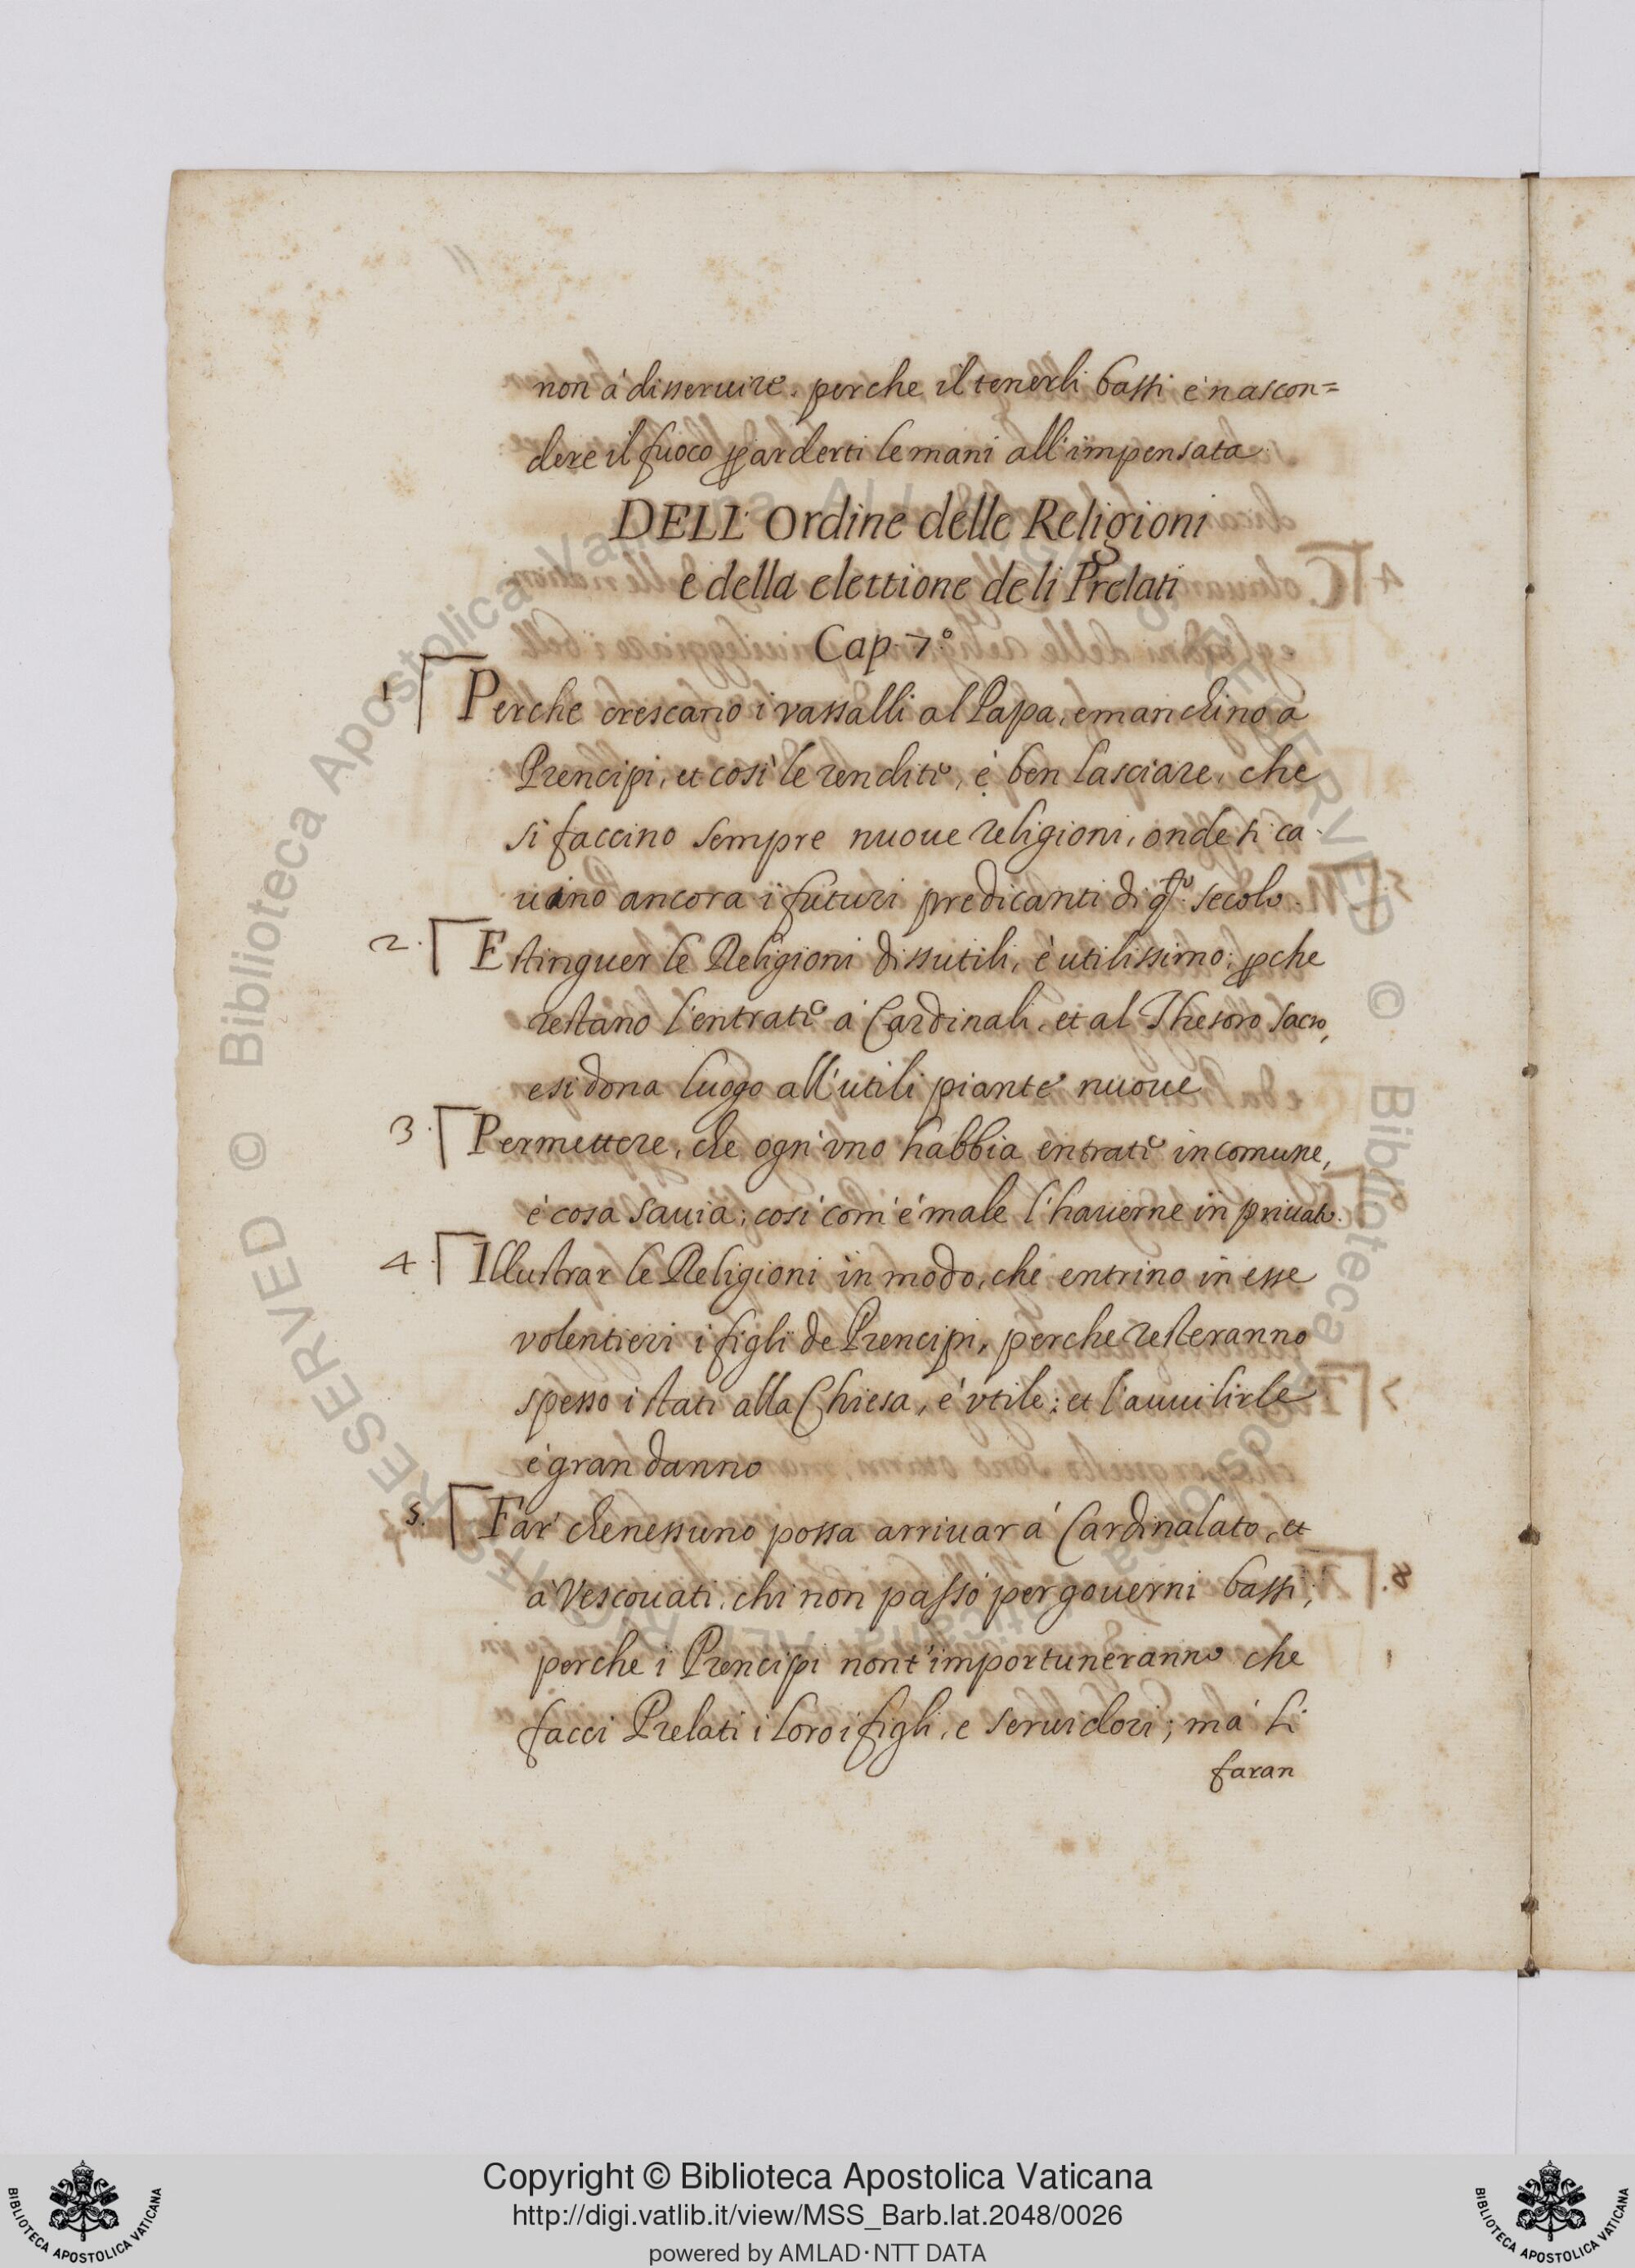 non à disseruire. perche il tenerli bassi è nascon=
dere il fuoco ꝑ arderti le mani all'impensata
DELL' Ordine delle Religioni
e della elettione deli Prelati
Cap. 7º
1 Perche crescano i vassalli al Papa, e manchino a
Prencipi, et così le rendite, è ben lasciare, che
si faccino sempre nuoue religioni, onde si ca
uino ancora i futuri predicanti di q̃sto secolo.
2. Estinguer le Religioni dissutili, è utilissimo; ꝑche
restano l'entrate à Cardinali, et al Thesoro sacro,
e si dona luogo all'utili piante nuoue
3. Permettere, che ogn'vno habbia entrate in comune,
è cosa sauia; così com'è male l'hauerne in priuato.
4. Illustrar le Religioni in modo, che entrino in esse
volentieri i figli de Prencipi, perche resteranno
spesso i stati alla Chiesa, è vtile: et l'auuilirle
è gran danno
5. Far che nessuno possa arriuar à Cardinalato, et
à Vescouati, chi non passò per gouerni bassi;
perche i Prencipi non t'importuneranno che
facci Prelati i loro i figli, e seruidori; mà li
faran
Copyright © Biblioteca Apostolica Vaticana
http://digi.vatlib.it/view/MSS_Barb.lat.2048/0026
powered by AMLAD·NTT DATA
BIBLIOTECA APOSTOLICA VATICANA
BIBLIOTECA APOSTOLICA VATICANA